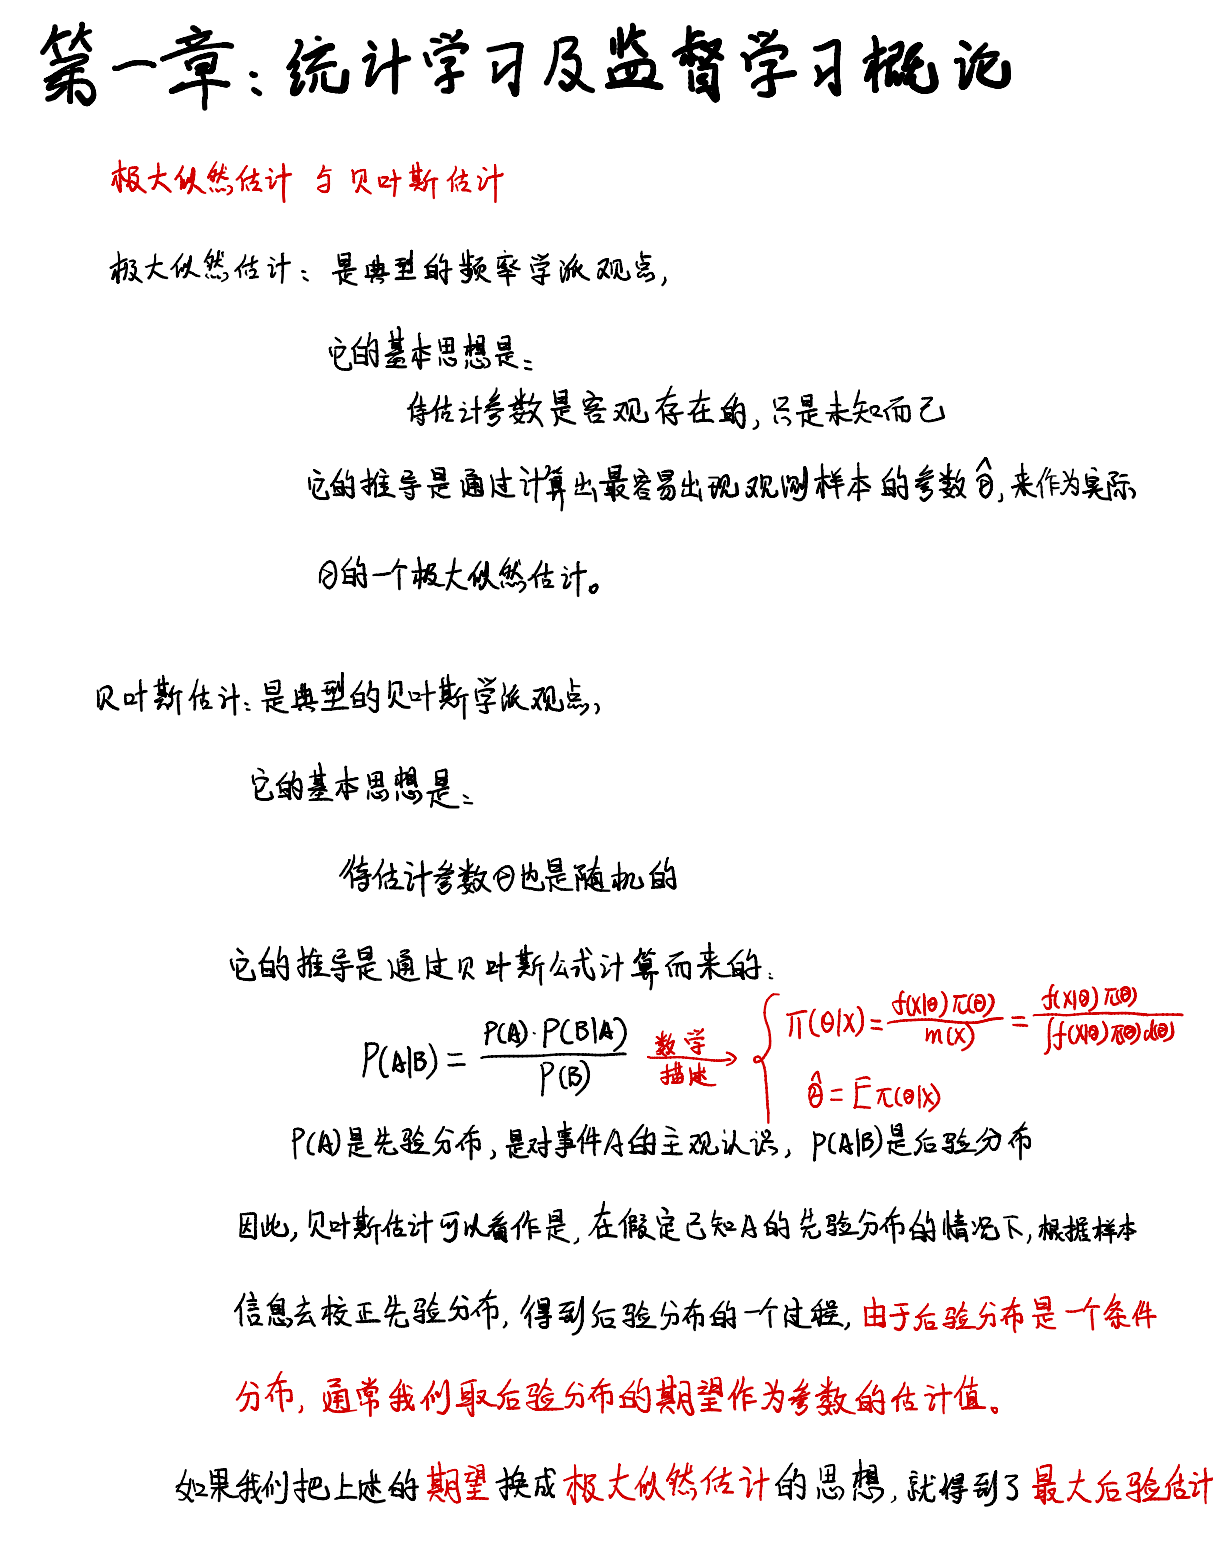 第一章：统计学习及监督学习概论
极大似然估计 与 贝叶斯估计
极大似然估计：是典型的频率学派观点，
它的基本思想是：
待估计参数是客观存在的，只是未知而已
它的推导是通过计算出最容易出现观测样本的参数θ̂，来作为实际
θ的一个极大似然估计。
贝叶斯估计：是典型的贝叶斯学派观点，
它的基本思想是：
待估计参数θ也是随机的
它的推导是通过贝叶斯公式计算而来的：
P(A|B) = P(A)·P(B|A) / P(B) 数学描述→ { π(θ|X) = f(X|θ)π(θ) / m(X) = f(X|θ)π(θ) / ∫f(X|θ)π(θ)d(θ)
θ̂ = Eπ(θ|X)
P(A)是先验分布，是对事件A的主观认识，P(A|B)是后验分布
因此，贝叶斯估计可以看作是，在假定已知A的先验分布的情况下，根据样本
信息去校正先验分布，得到后验分布的一个过程，由于后验分布是一个条件
分布，通常我们取后验分布的期望作为参数的估计值。
如果我们把上述的期望换成极大似然估计的思想，就得到了最大后验估计